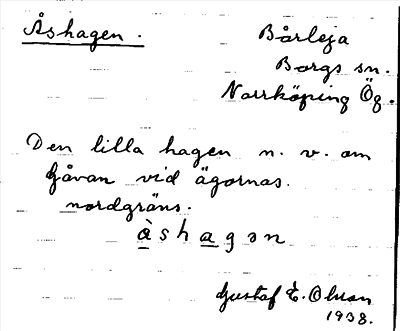 Åshagen.
Bårleja
Borgs sn.
Norrköping Ög.
Den lilla hagen n. v. om
Gåvan vid ägornas.
nordgräns.
åshagən
Gustaf E. Olsson
1938.